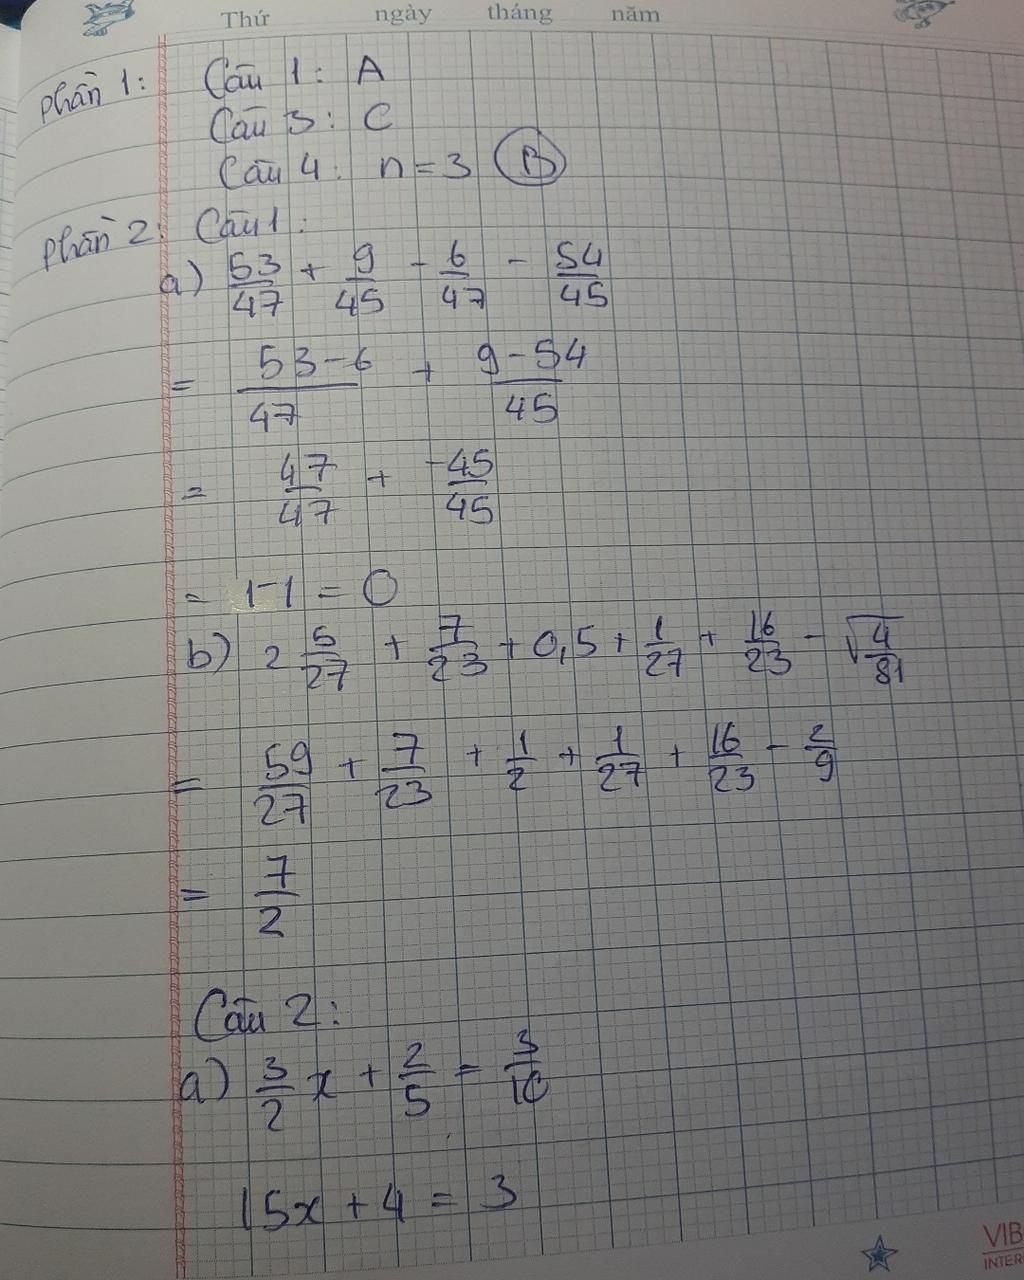 Thứ ngày tháng năm
Phần 1: Câu 1: A
Câu 3: C
Câu 4: n = 3 B
Phần 2: Câu 1:
a) 53/47 + 9/45 - 6/47 - 54/45
= (53-6)/47 + (9-54)/45
= 47/47 + -45/45
= 1-1 = 0
b) 2 5/27 + 7/23 + 0,5 + 1/27 + 16/23 - √(4/81)
= 59/27 + 7/23 + 1/2 + 1/27 + 16/23 - 2/9
= 7/2
Câu 2:
a) 3/2 x + 2/5 = 3/10
15x + 4 = 3
VIB
INTER